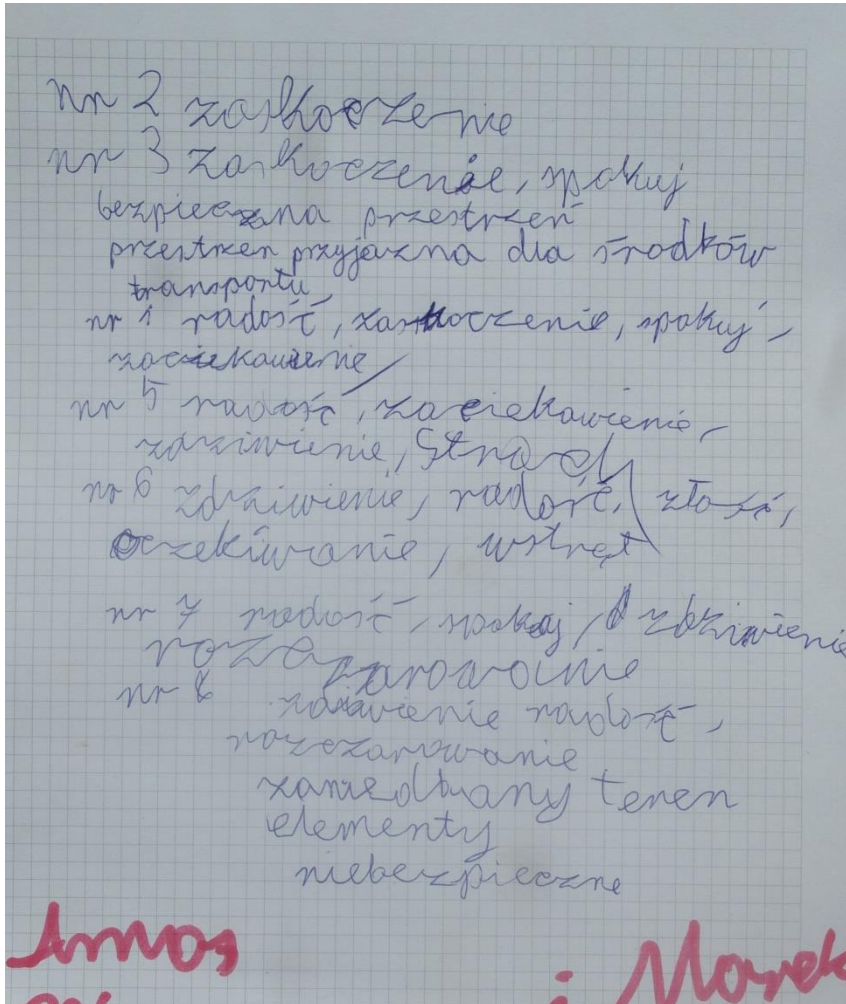 nr 2 zaskoczenie
nr 3 zaskoczenie, spokuj
bezpieczna przestrzeń
przestrzen przyjazna dla środków
transportu
nr 1 radość, zaskoczenie, spokuj,
zaciekawienie
nr 5 radość, zaciekawienie,
zdziwienie, Strach
nr 6 zdziwienie, radość, złość,
oczekiwanie, wstręt
nr 7 radość, spokój, zdziwienie
rozczarowanie
nr 8 zdziwienie radość,
rozczarowanie
zaniedbany teren
elementy
niebezpieczne
i Marek